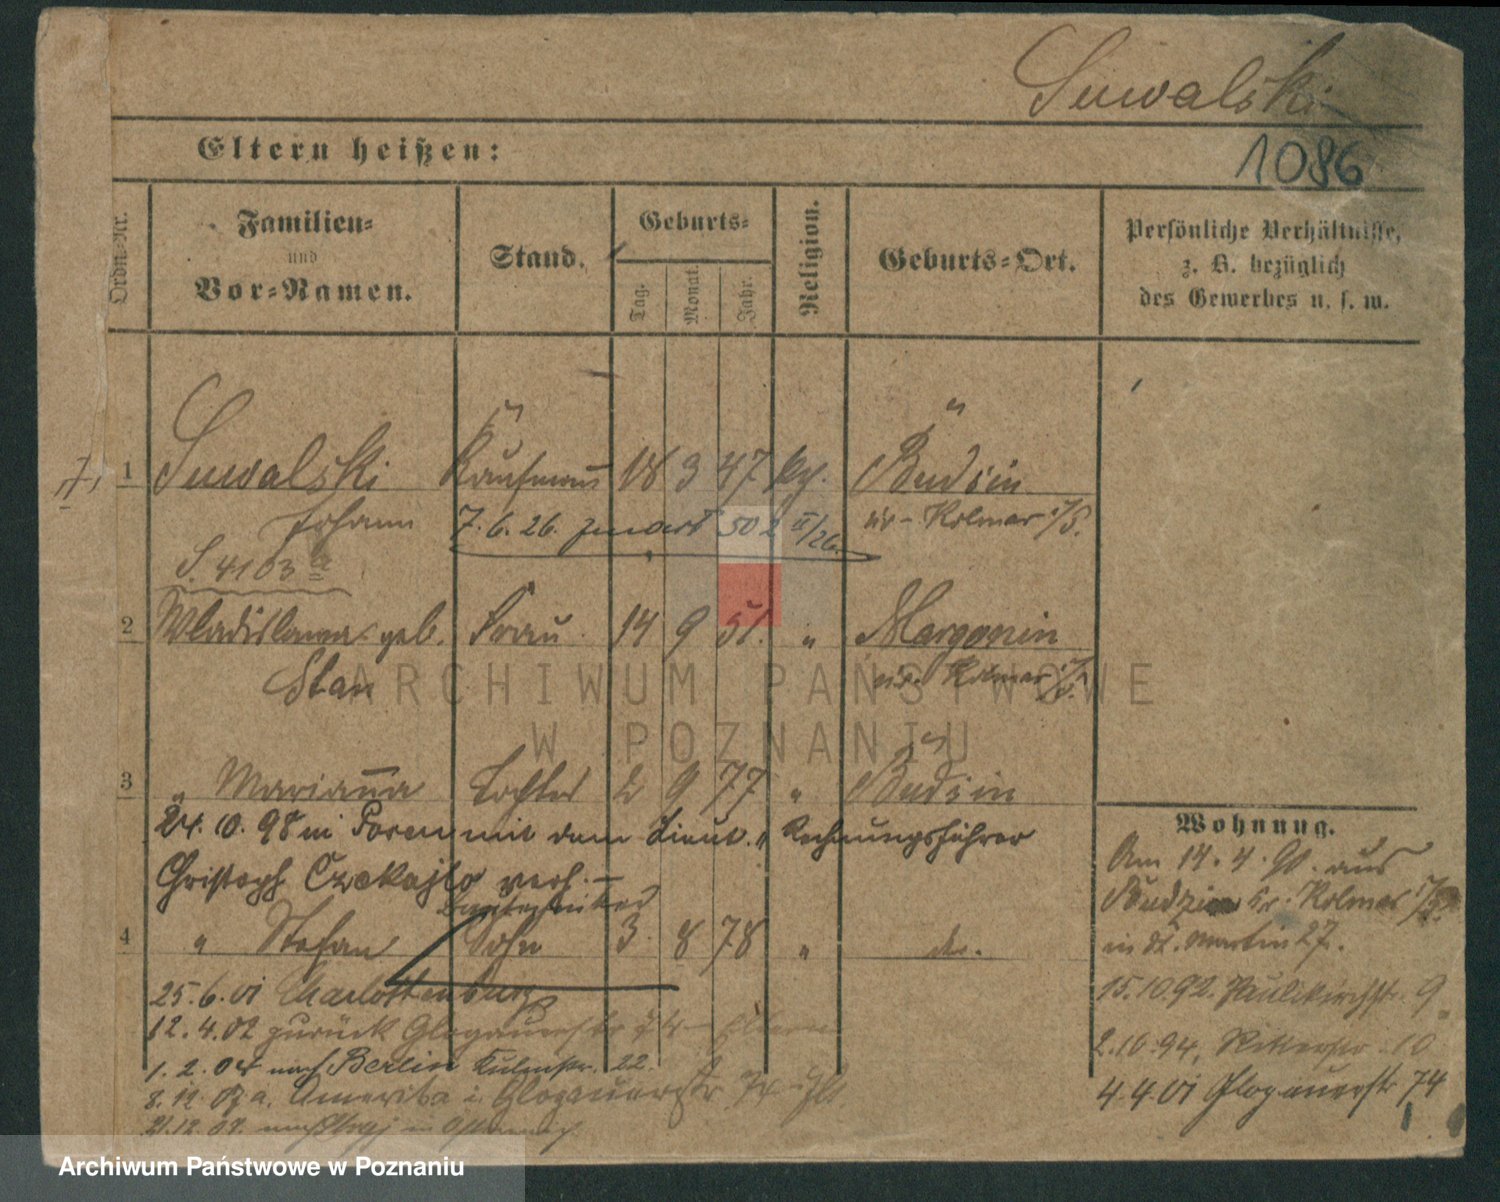 Suwalski
1086
Eltern heißen:
Ordn.-Nr.
Familien-
und
Vor-Namen.
Stand.
Geburts-
Tag.
Monat.
Jahr.
Religion.
Geburts-Ort.
Persönliche Verhältnisse,
z. B. bezüglich
des Gewerbes u. s. w.
1 Suwalski Kaufmann 18 3 47 kth. Budsin
Johann 7. 6. 26. 502 II/26. Kr. Kolmar i/P.
S. 4103
2 Wladislawa geb. Frau 14 9 51. " Margonin
Stan Kr. Kolmar i/P.
3 " Marianna Tochter 2 9 77 " Budsin
24. 10. 98 in Posen mit dem Lieut. u. Rechnungsführer
Christoph Czekajlo verh. –
Bautechniker
4 " Stefan Sohn 3 8 78 " do.
25. 6. 01 Charlottenburg
12. 4. 02 zurück Glogauerstr 74 Eltern
1. 2. 04 nach Berlin Kulmstr. 22.
8. 12. a. Amerika i. Glogauerstr 74
21. 12. 07. nach in
Wohnung.
Am 14. 4. 90. aus
Budzin Kr. Kolmar i/P.
in St. Martin 27.
15. 10. 92. Paulikirchstr. 9.
2. 10. 94. Ritterstr. 10
4. 4. 01 Glogauerstr 74
ARCHIWUM PAŃSTWOWE
W POZNANIU
Archiwum Państwowe w Poznaniu